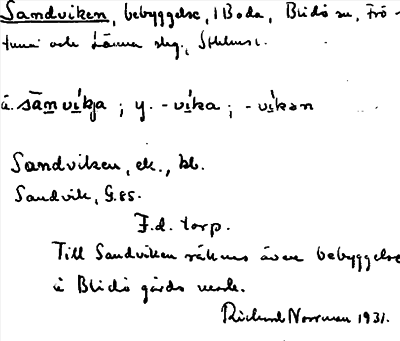 Sandviken, bebyggelse, i Boda, Blidö sn, Frö-
tuna och Länna skg., Sthlms l.
ä. sāmvíkja ; y. -víka ; -víkən
Sandviken, ek., bl.
Sandvik, G.85.
F.d. torp.
Till Sandviken räknas även bebyggelse
å Blidö gårds mark.
Richard Norrman 1931.